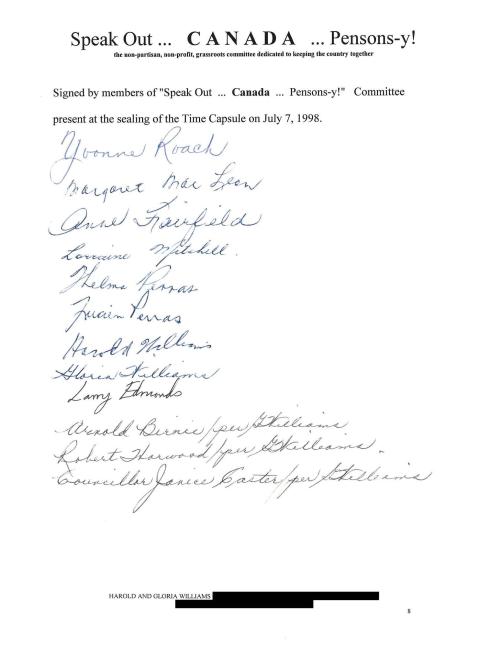 Speak Out ... CANADA ... Pensons-y!
the non-partisan, non-profit, grassroots committee dedicated to keeping the country together
Signed by members of "Speak Out ... Canada ... Pensons-y!" Committee
present at the sealing of the Time Capsule on July 7, 1998.
Yvonne Roach
Margaret Mac Lean
Anne Fairfield
Lorraine Mitchell.
Thelma Perras
Perras
Harold Williams
Gloria Williams
Larry Edmonds
Arnold Birnie/per GWilliams
Robert Harwood/per GWilliams.
Councillor Janice Carter/per GWilliams
HAROLD AND GLORIA WILLIAMS
8